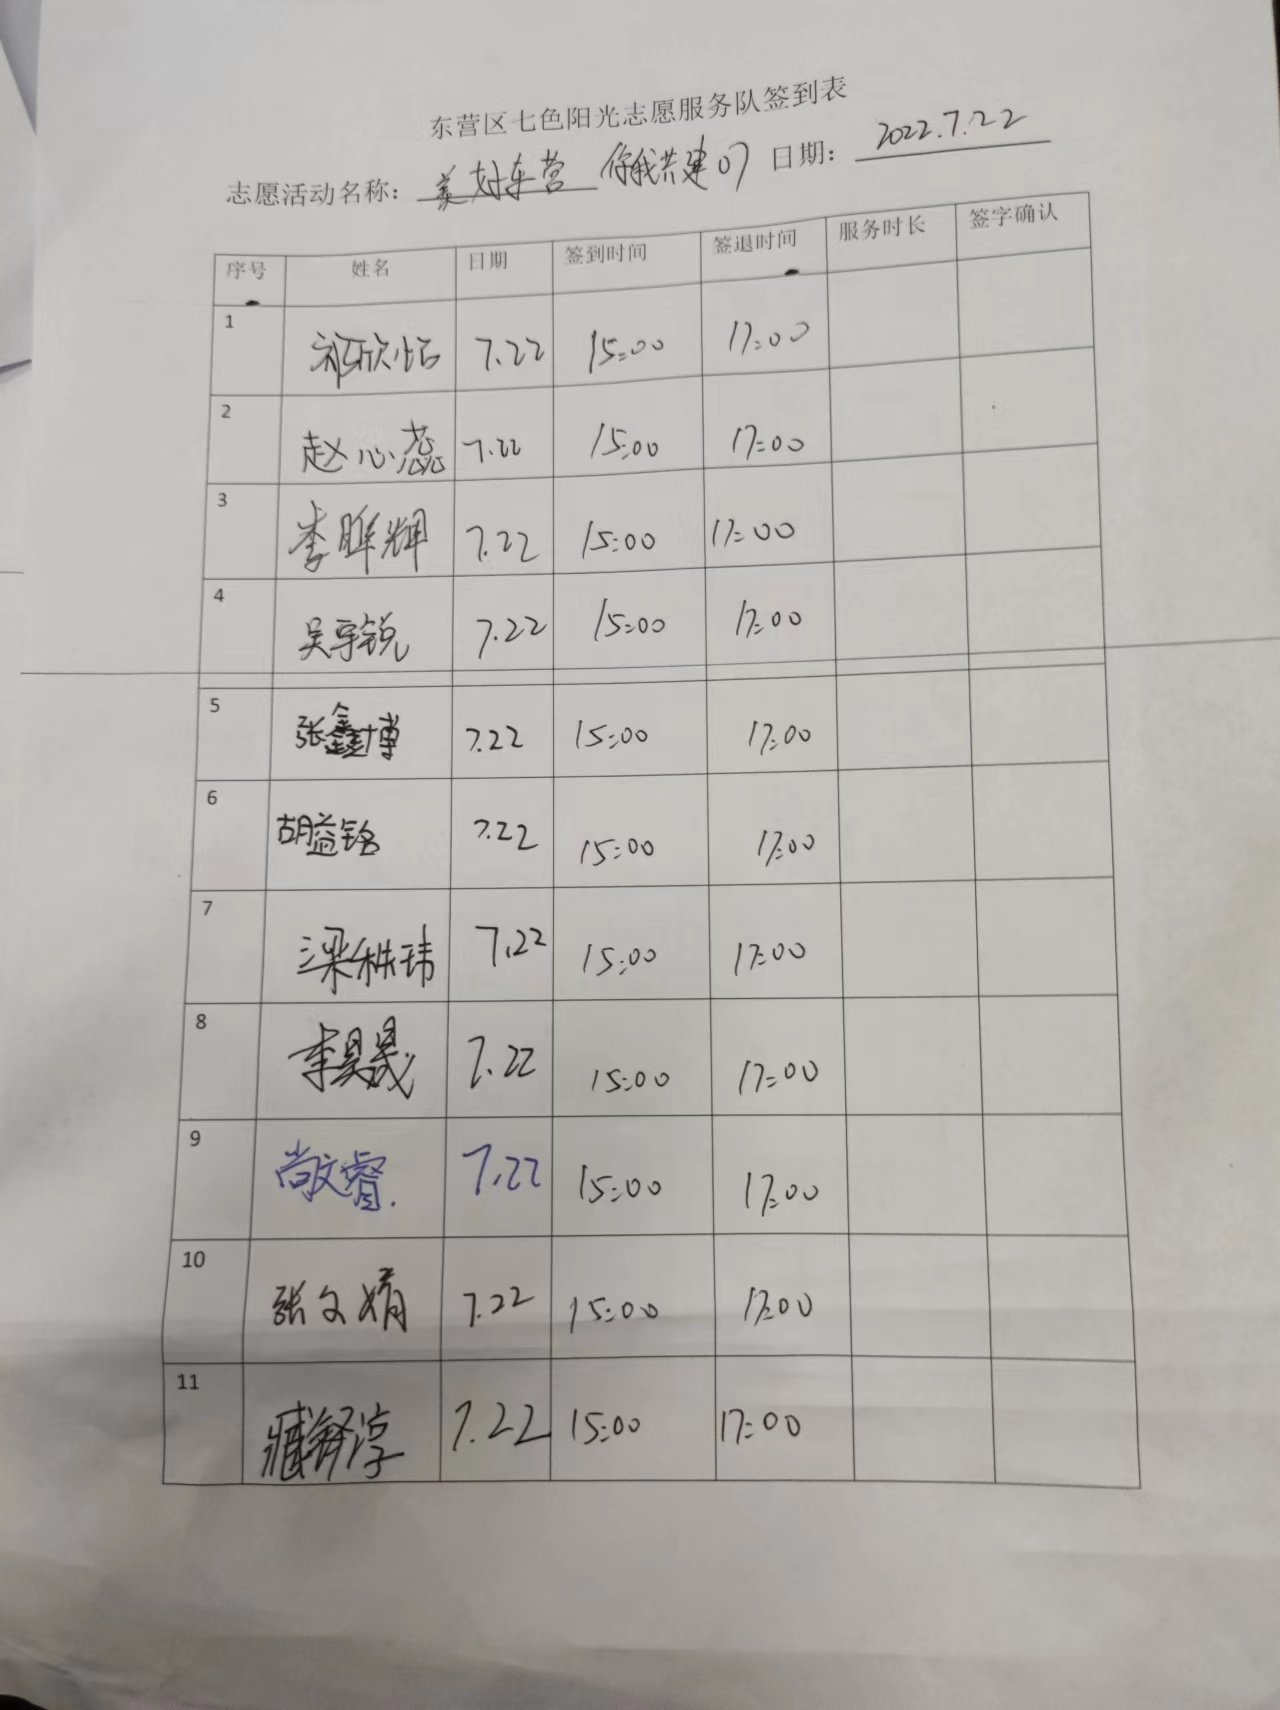 东营区七色阳光志愿服务队签到表
志愿活动名称: 美好东营 你我共建 07 日期: 2022.7.22
序号 姓名 日期 签到时间 签退时间 服务时长 签字确认
1 祁欣怡 7.22 15:00 17:00
2 赵心蕊 7.22 15:00 17:00
3 李晖辉 7.22 15:00 17:00
4 吴宇锐 7.22 15:00 17:00
5 张鑫博 7.22 15:00 17:00
6 胡益铭 7.22 15:00 17:00
7 梁秩玮 7.22 15:00 17:00
8 李昊晟 7.22 15:00 17:00
9 尚文睿. 7.22 15:00 17:00
10 张文婧 7.22 15:00 17:00
11 臧舒淳 7.22 15:00 17:00